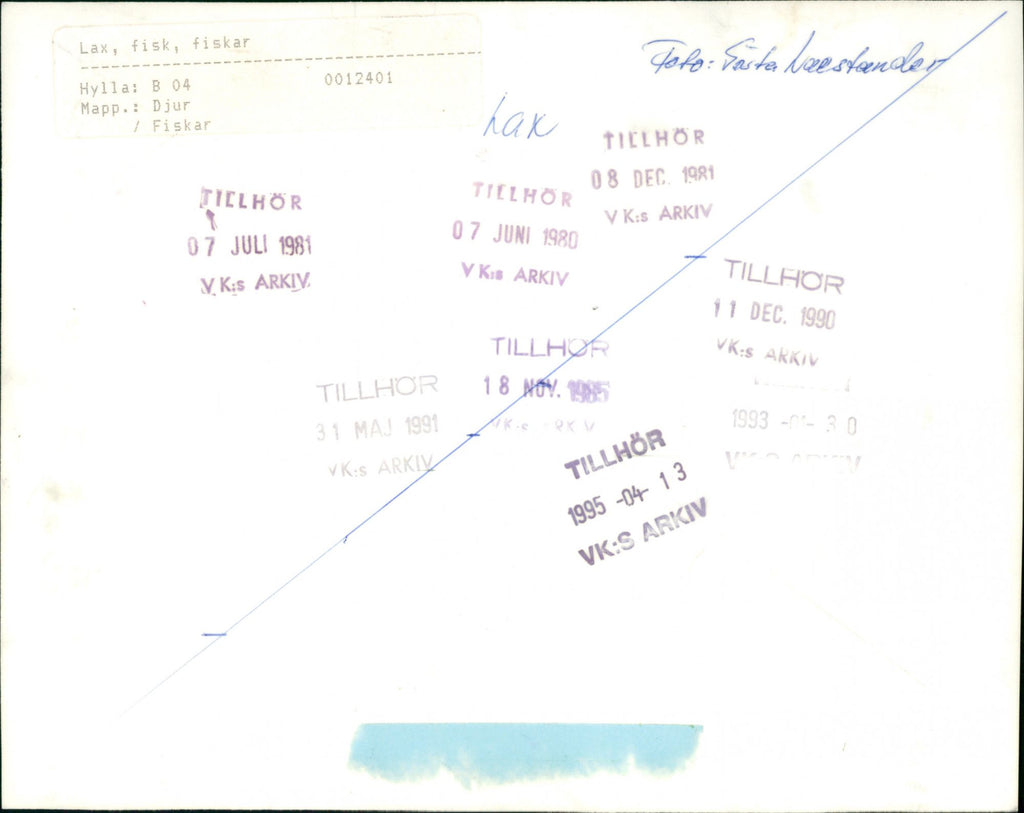 Lax, fisk, fiskar
Hylla: B 04 0012401
Mapp.: Djur
/ Fiskar
Foto: Gösta
Lax
TILLHÖR
08 DEC. 1981
VK:s ARKIV
TILLHÖR
07 JULI 1981
VK:s ARKIV
TILLHÖR
07 JUNI 1980
VK:s ARKIV
TILLHÖR
11 DEC. 1990
VK:s ARKIV
TILLHÖR
18 NOV. 1985
VK:s ARKIV
TILLHÖR
31 MAJ 1991
VK:s ARKIV
1993 -01- 30
VK:S ARKIV
TILLHÖR
1995 -04- 13
VK:S ARKIV